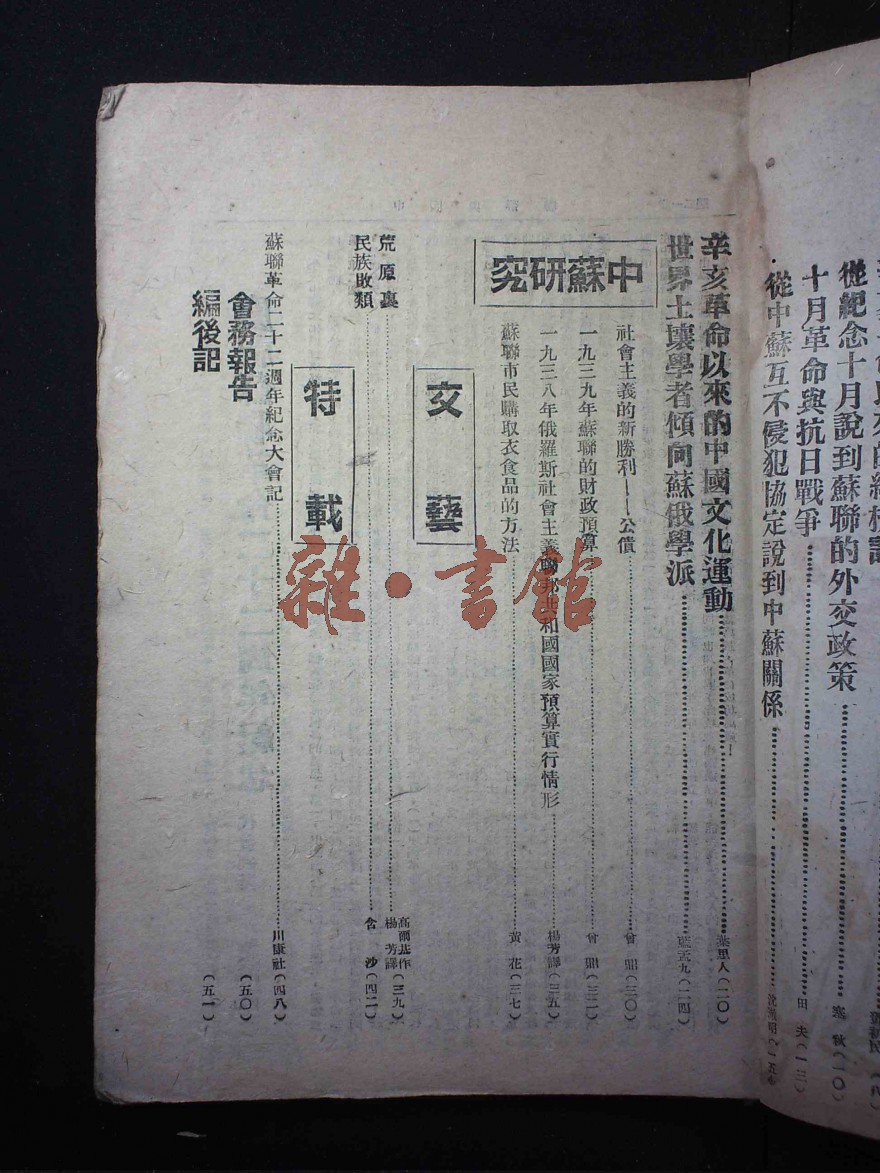 從紀念十月說到蘇聯的外交政策 寒秋(一〇)
十月革命與抗日戰爭 田夫(一三)
從中蘇互不侵犯協定說到中蘇關係
辛亥革命以來的中國文化運動 葉里人(二〇)
世界土壤學者傾向蘇俄學派 (二四)
中蘇研究
社會主義的新勝利——公債 曾鼎(三〇)
一九三九年蘇聯的財政預算 曾鼎(三二)
一九三八年俄羅斯社會主義聯邦共和國國家預算實行情形 楊芳譯(三五)
蘇聯市民購取衣食品的方法 黃花(三七)
文藝
荒原裏 高爾基作 楊芳譯(三九)
民族敗類 含沙(四二)
特載
蘇聯革命二十二週年紀念大會記 川康社(四八)
會務報告 (五〇)
編後記 (五一)
雜·書館